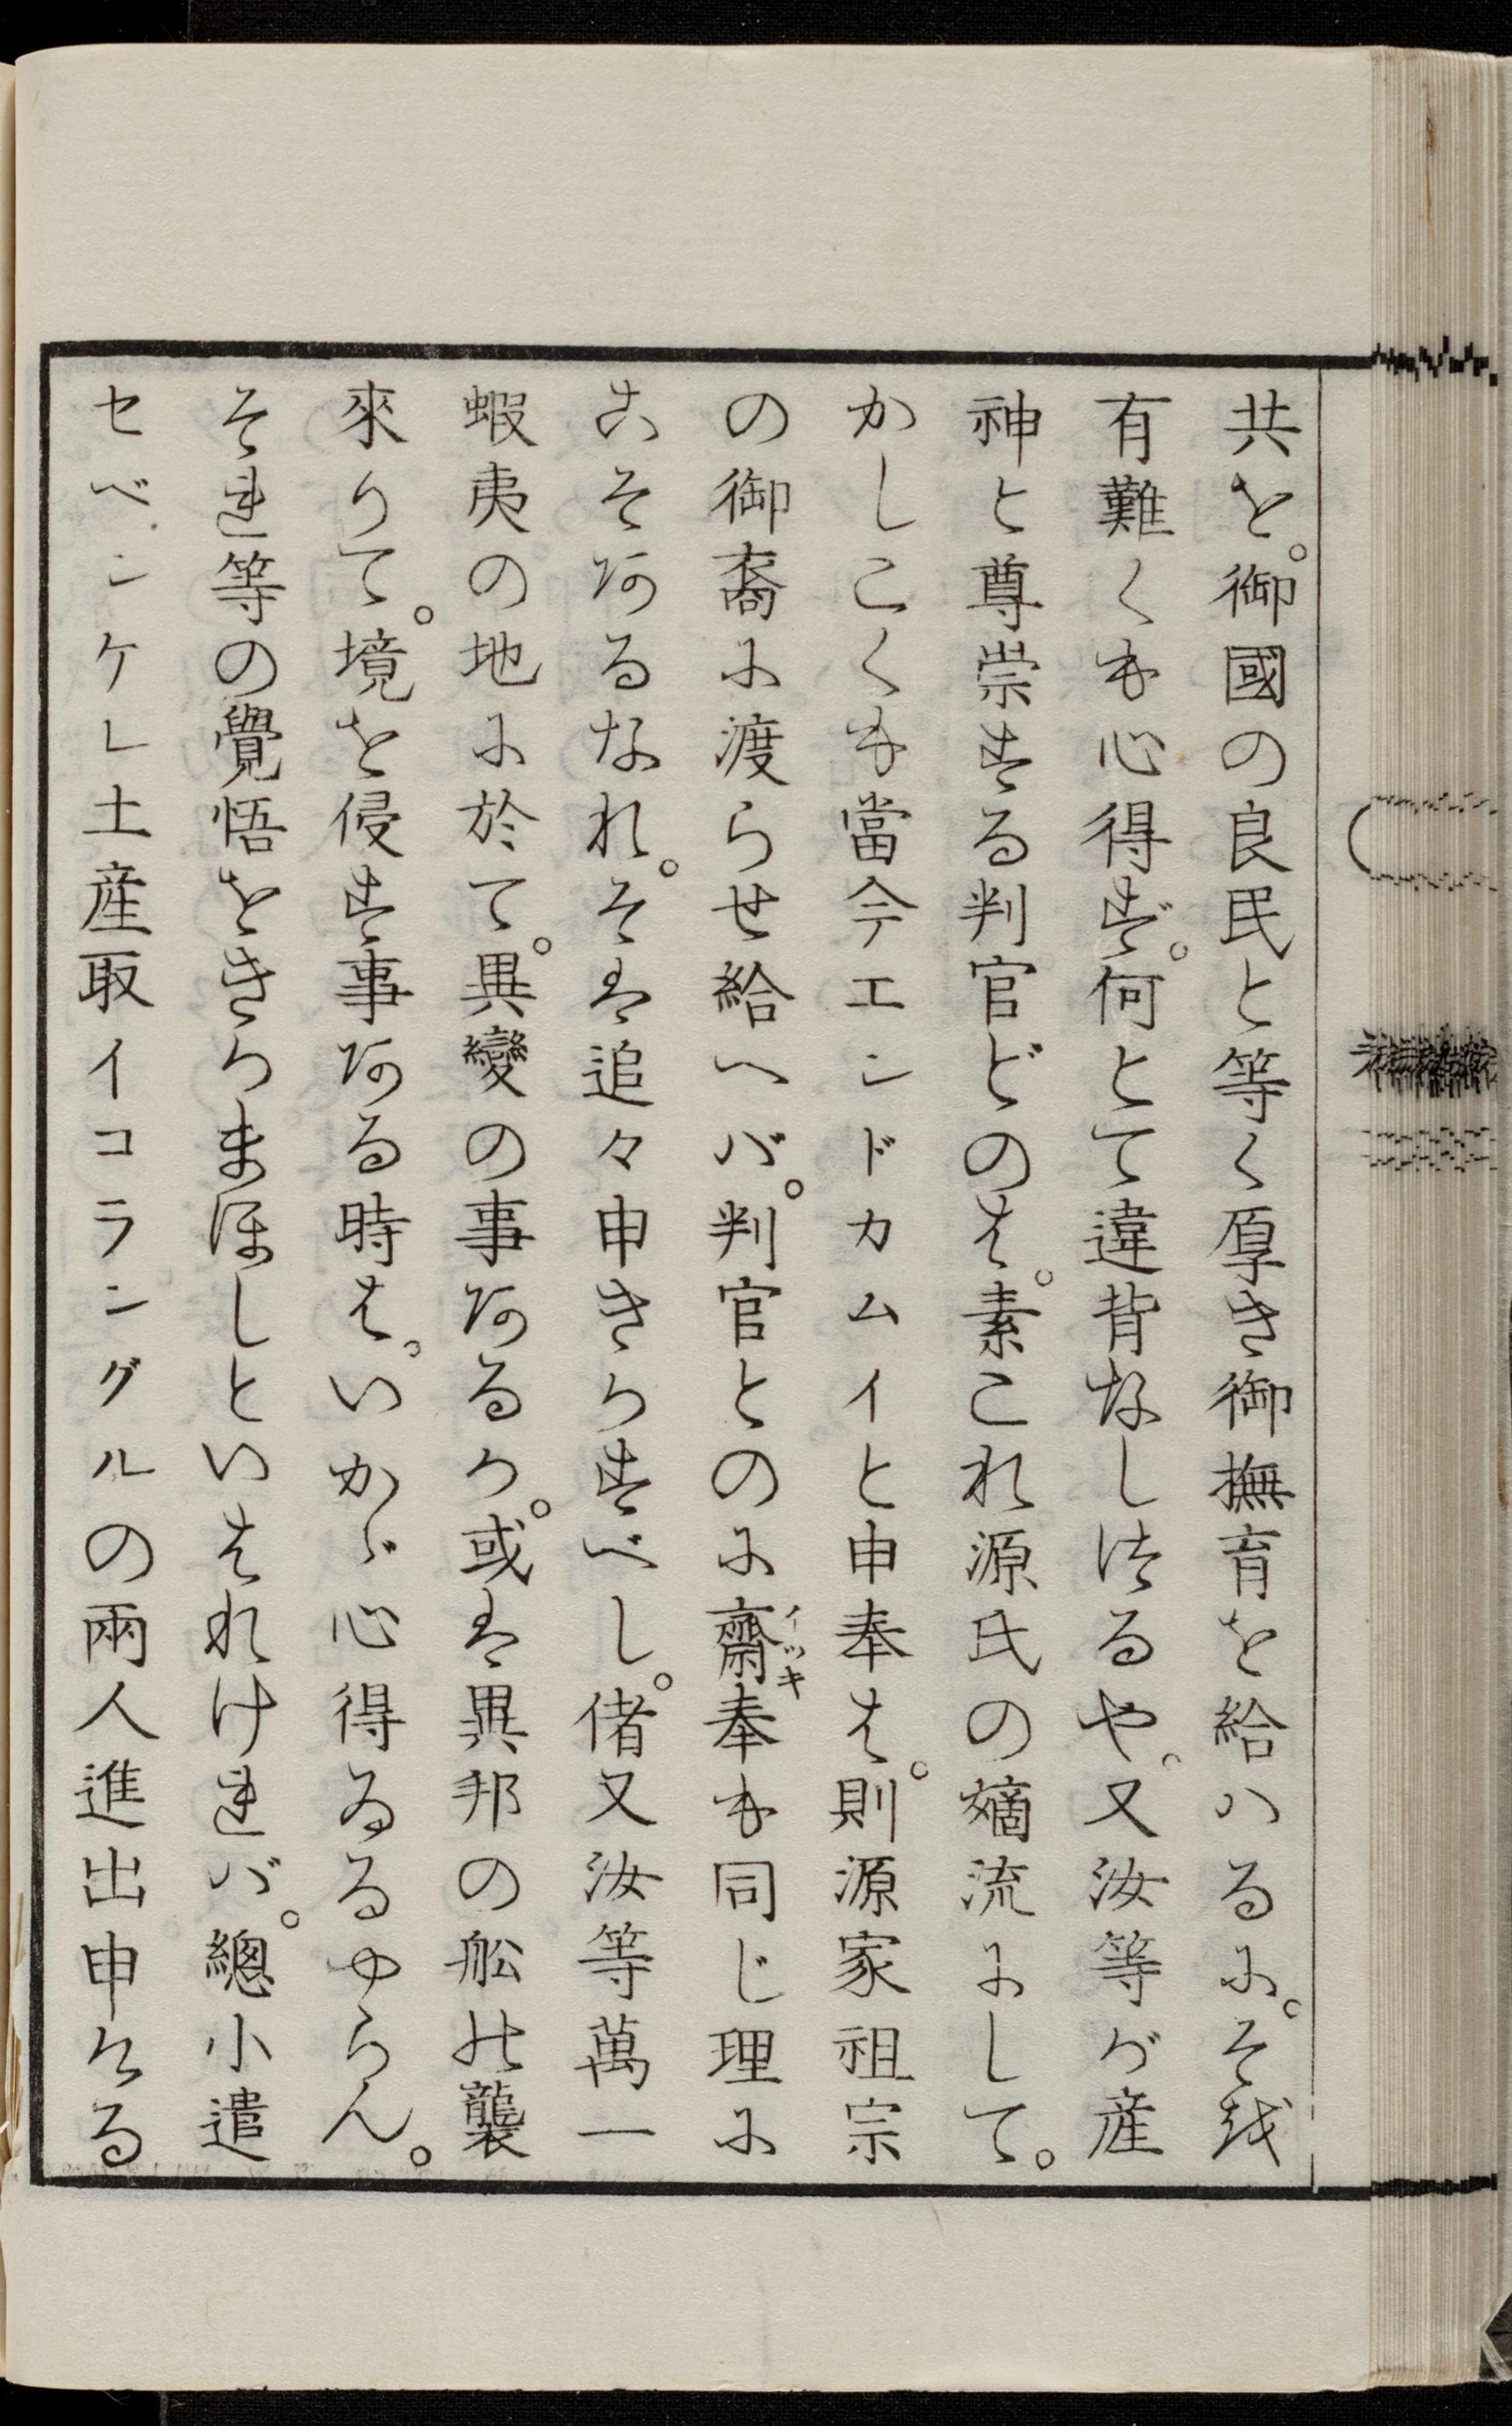 共を。御國の良民と等く厚き御撫育を給ハるに。そを
有難くも心得ず。何とて違背なしけるや。又汝等が産
神と尊崇する判官どのは。素これ源氏の嫡流にして。
かしこくも當今エンドカムイと申奉は。則源家祖宗
の御裔に渡らせ給へバ。判官とのに齋イツキ奉も同じ理に
こそあるなれ。そは追々申きかすべし。偖又汝等萬一
蝦夷の地に於て。異變の事あるか。或は異邦の舩の襲
來りて。境を侵す事ある時は。いかゞ心得ゐるやらん。
それ等の覺悟をきかまほしといはれけれバ。總小遣
セベンケレ土産取イコラングルの兩人進出申ける